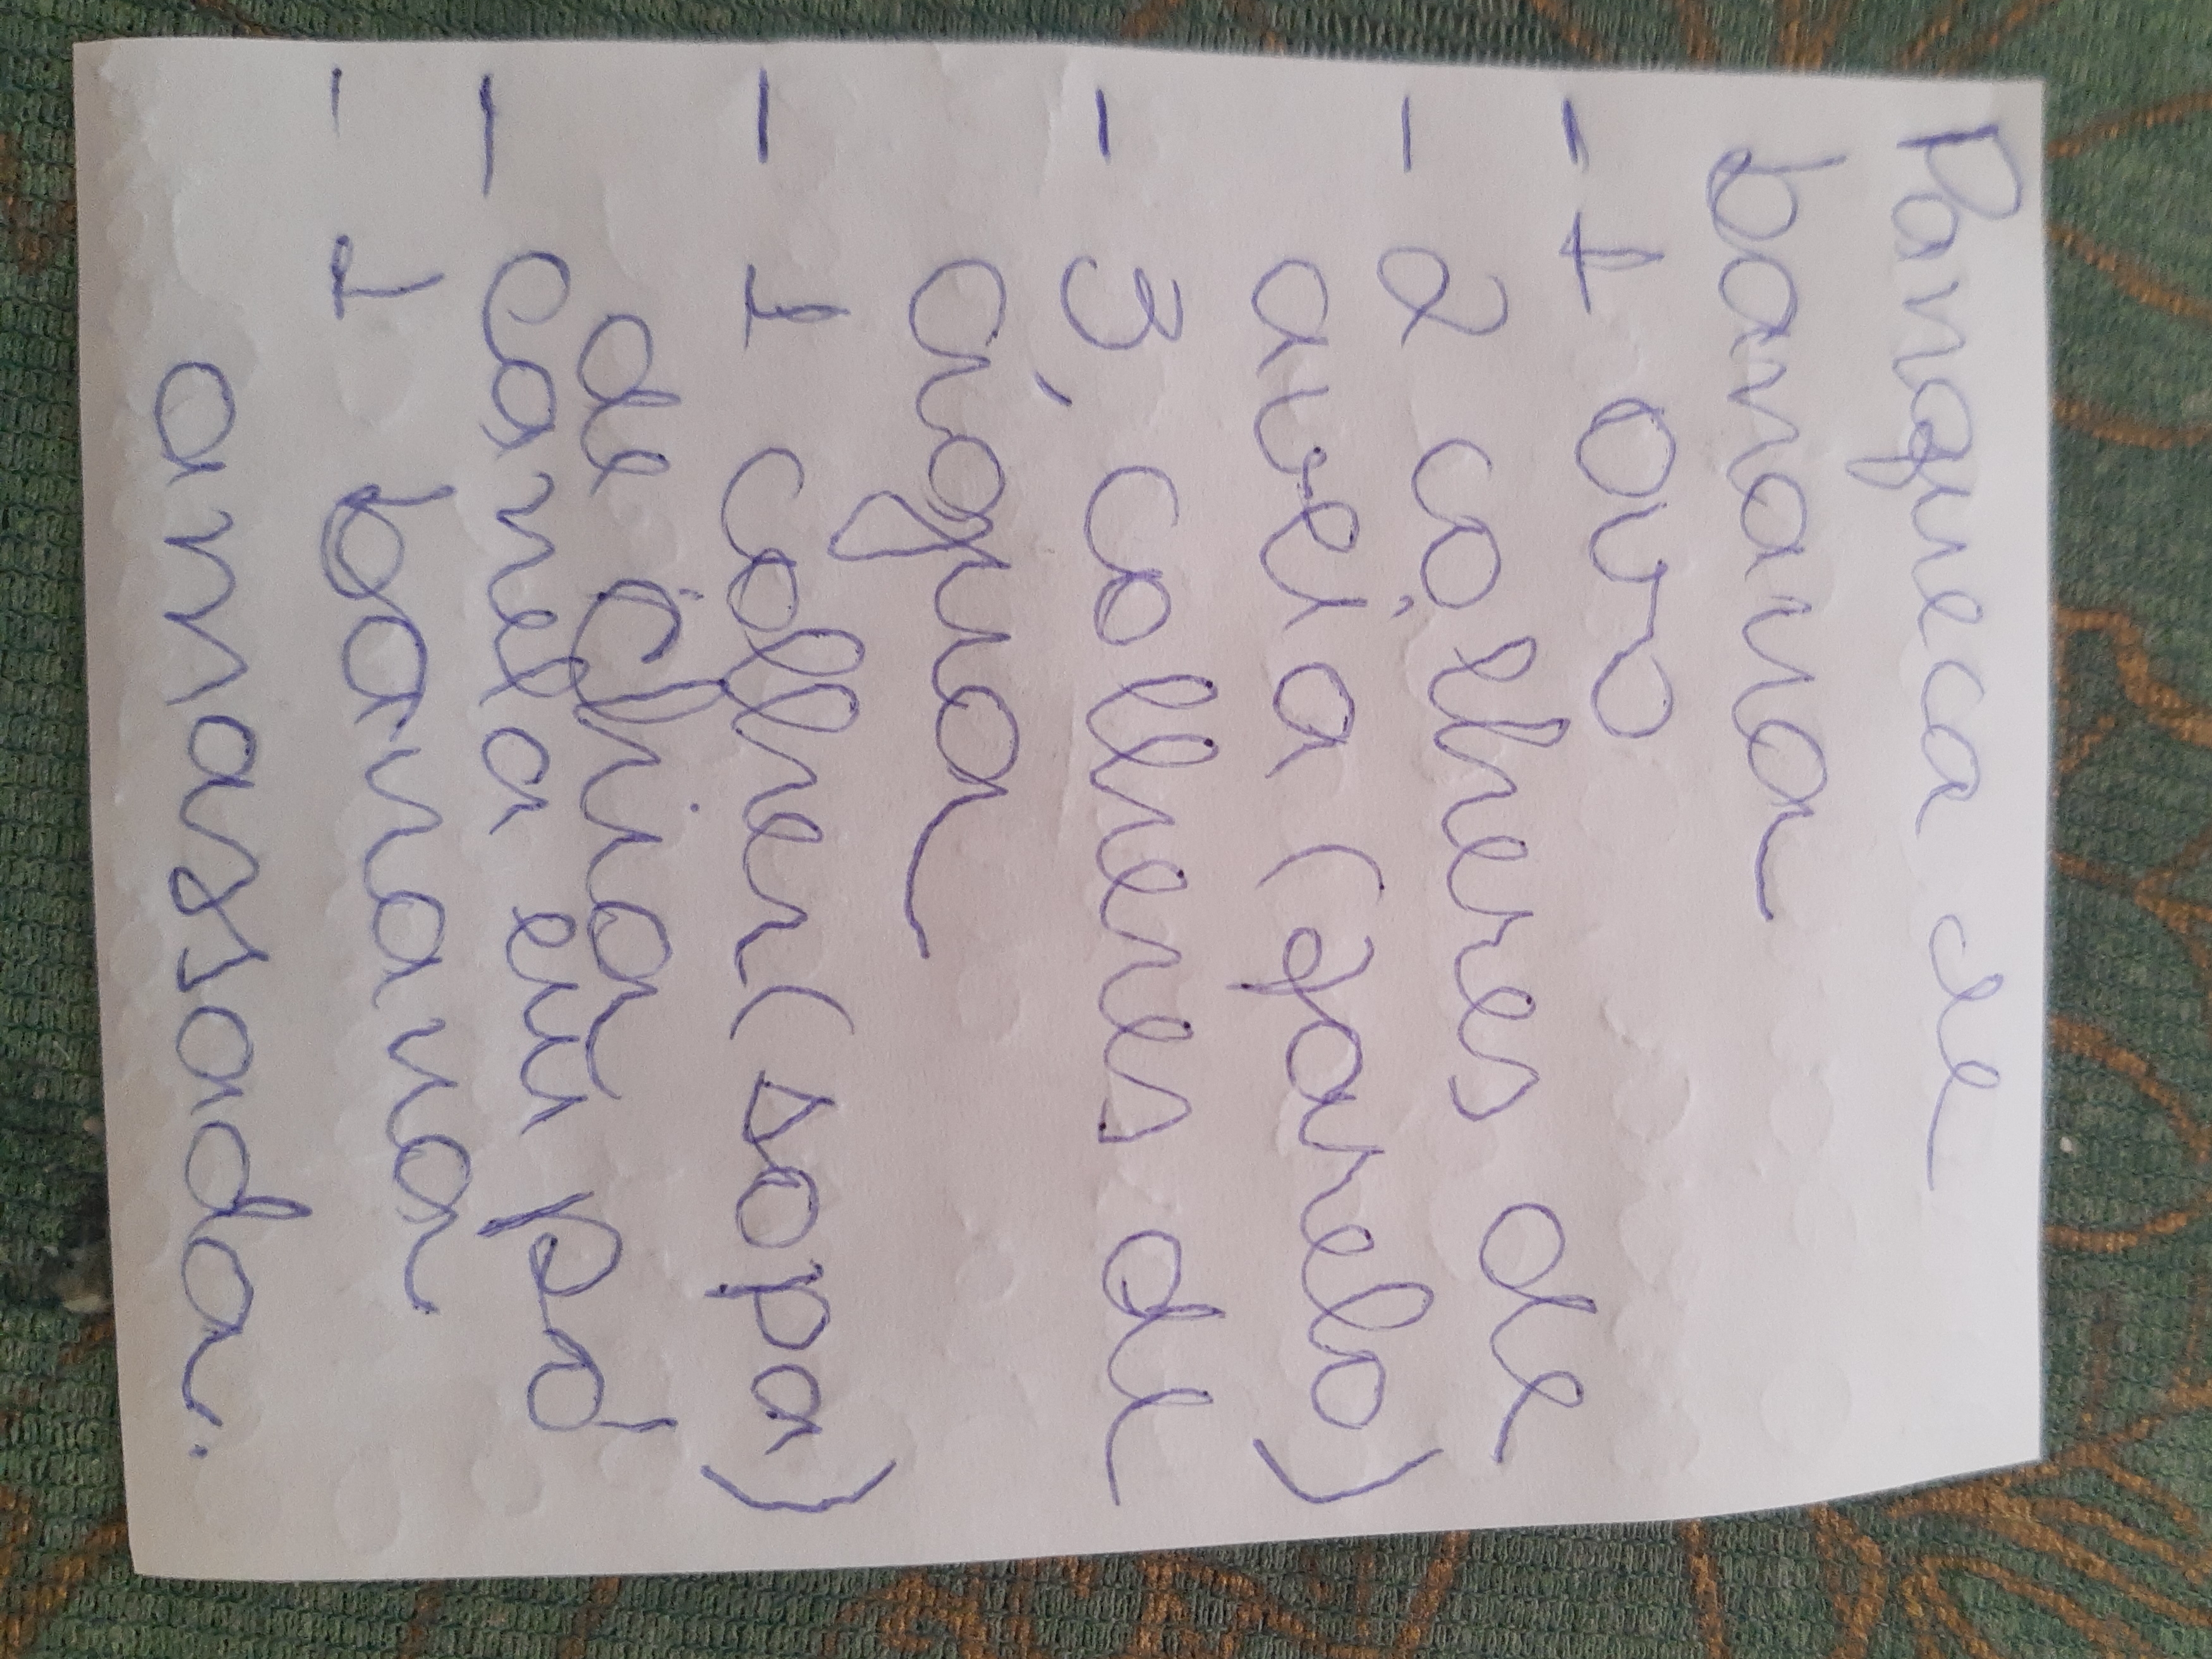 Panqueca de
banana
- 1 ovo
- 2 colheres de
aveia (farelo)
- 3 colheres de
água
- 1 colher (sopa)
de chia
- canela em pó
- 1 banana
amassada.